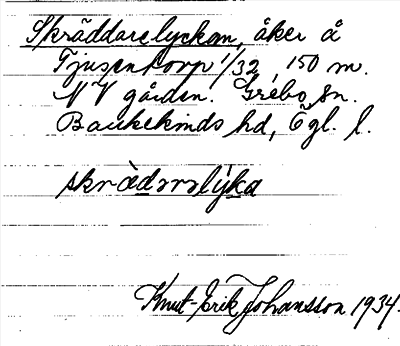 Skräddarelyckan, åker å
Tjusentorp 1/32, 150 m.
NV gården. Grebo sn.
Bankekinds hd, Ögl. l.
skrädərəlỳka
Knut-Erik Johansson 1934.